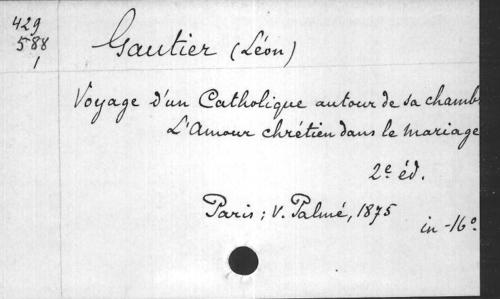 429
588
1
Gautier (Léon)
Voyage d'un Catholique autour de sa chamb
L'Amour chrétien dans le mariage
2e éd.
Paris ; V. Palmé, 1875
in-16o.